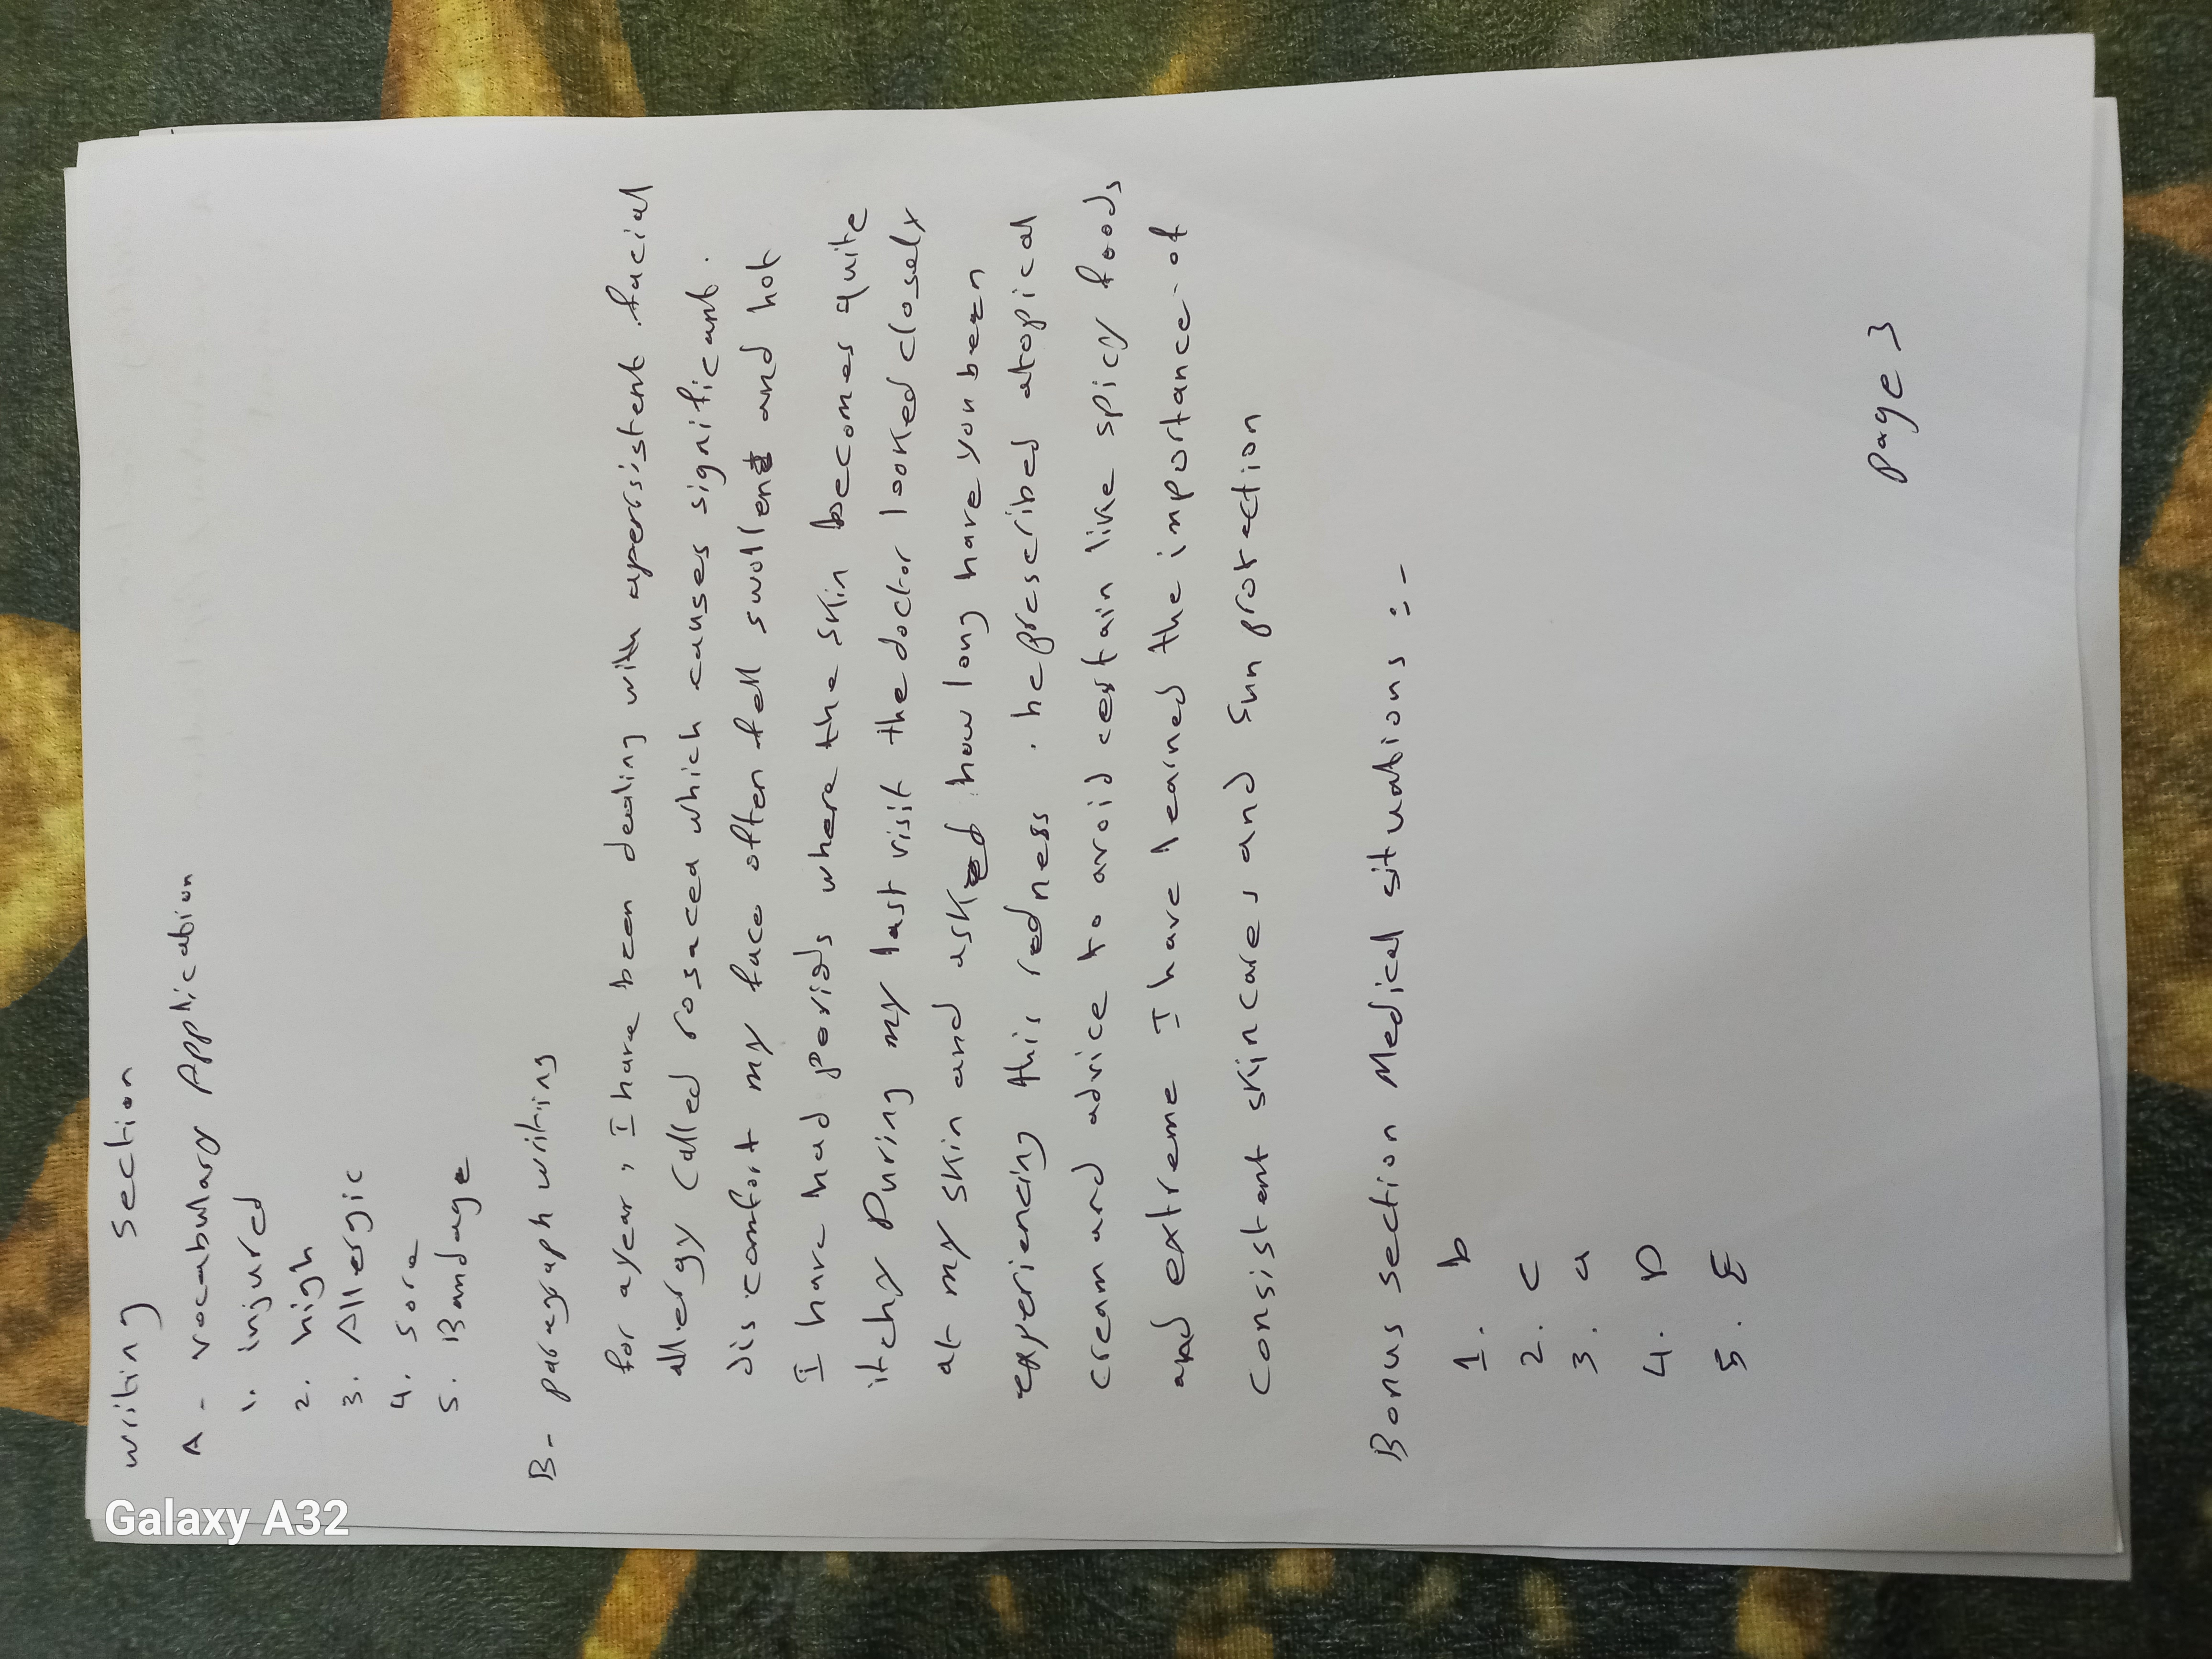 writing section
A - vocabulary Application
1. injured
2. high
3. Allergic
4. sore
5. Bandage
B- paragraph writing
for ayear, I have been dealing with apersistent facial
allergy called rosacea which causes significant.
discomfort my face often fell swollen and hot
I have had periods where the skin becomes quite
itchy During my last visit the doctor looked closely
at my skin and asked how long have you been
experiencing this redness. he prescribed atopical
cream and advice to avoid certain like spicy foods
and extreme I have learned the importance of
consistent skincares and Sun protection
Bonus section Medical situations :-
1. b
2. c
3. a
4. D
5. E
page 3
Galaxy A32